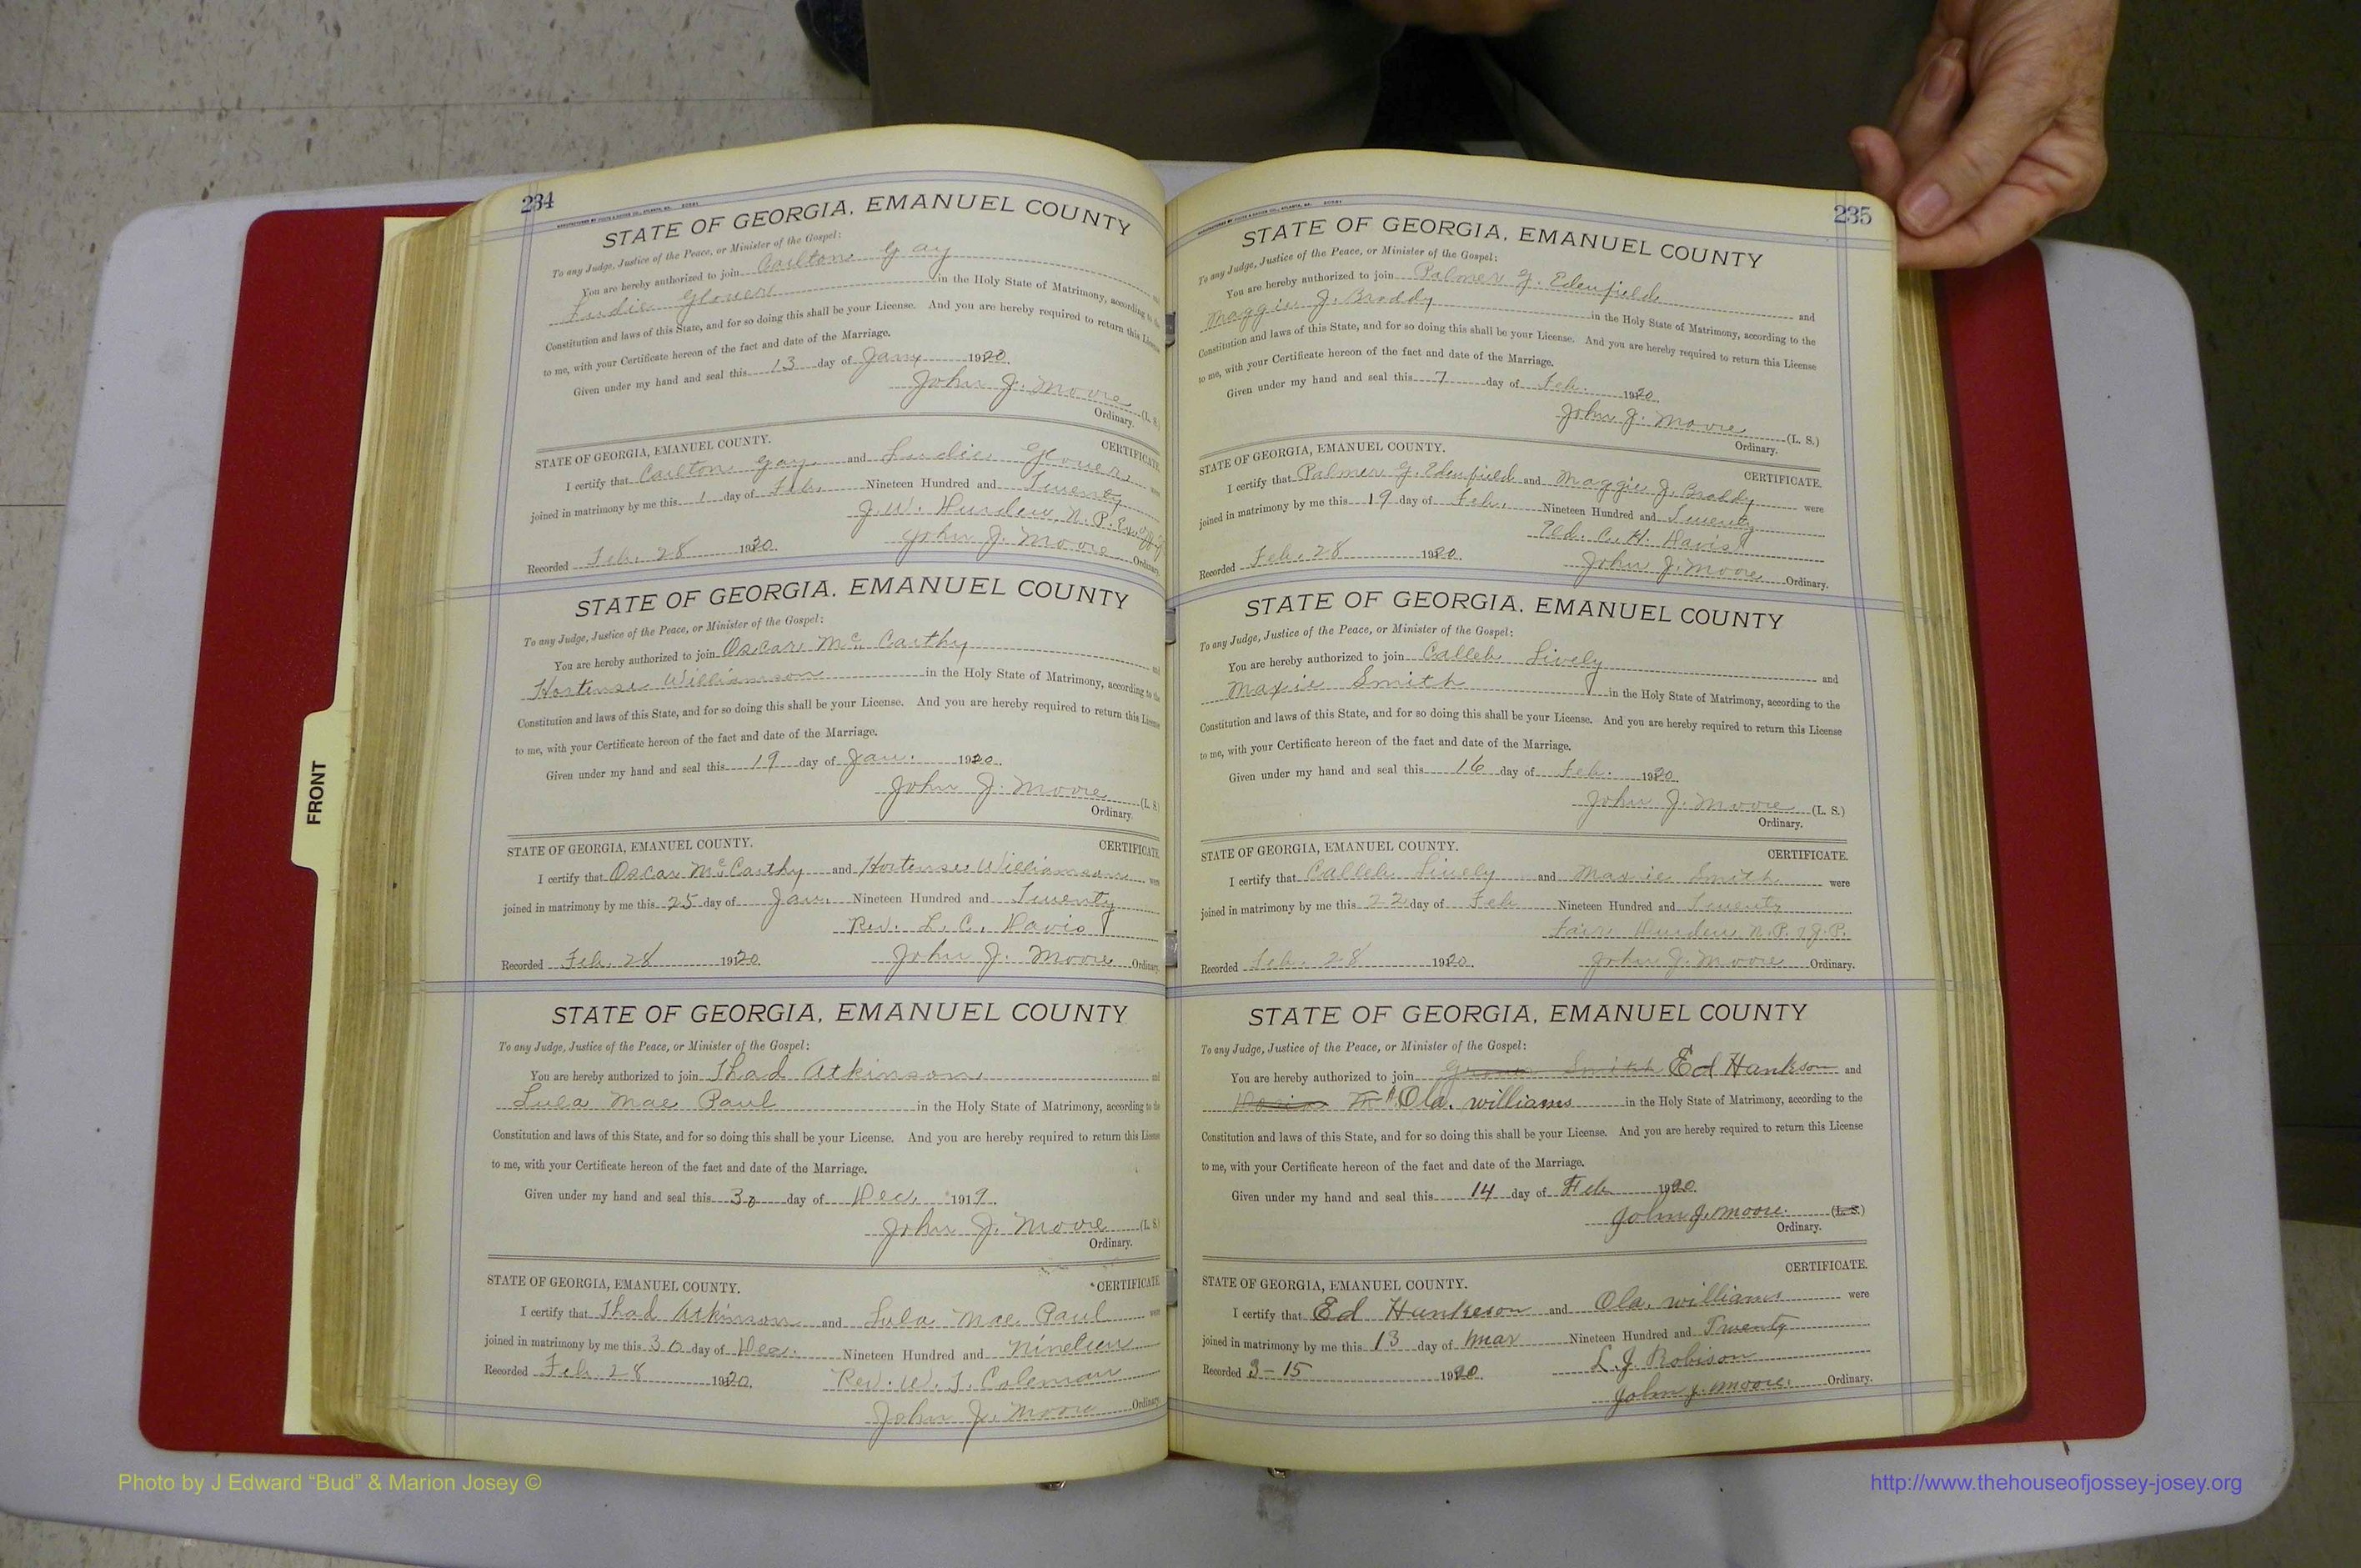 234
STATE OF GEORGIA, EMANUEL COUNTY
To any Judge, Justice of the Peace, or Minister of the Gospel:
You are hereby authorized to join Carlton Gay and
Ludie Glover in the Holy State of Matrimony, according to the
Constitution and laws of this State, and for so doing this shall be your License. And you are hereby required to return this License
to me, with your Certificate hereon of the fact and date of the Marriage.
Given under my hand and seal this 13 day of Jany 1920.
John J. Moore (L. S.)
Ordinary.
STATE OF GEORGIA, EMANUEL COUNTY. CERTIFICATE.
I certify that Carlton Gay and Ludie Glover were
joined in matrimony by me this 1 day of Feb. Nineteen Hundred and Twenty
J. W. Durden, N. P.
Recorded Feb. 28 1920. John J. Moore Ordinary.
STATE OF GEORGIA, EMANUEL COUNTY
To any Judge, Justice of the Peace, or Minister of the Gospel:
You are hereby authorized to join Oscar McCarthy and
Hortense Williamson in the Holy State of Matrimony, according to the
Constitution and laws of this State, and for so doing this shall be your License. And you are hereby required to return this License
to me, with your Certificate hereon of the fact and date of the Marriage.
Given under my hand and seal this 19 day of Jan. 1920.
John J. Moore (L. S.)
Ordinary.
STATE OF GEORGIA, EMANUEL COUNTY. CERTIFICATE.
I certify that Oscar McCarthy and Hortense Williamson were
joined in matrimony by me this 25 day of Jan. Nineteen Hundred and Twenty
Rev. L. C. Davis
Recorded Feb. 28 1920. John J. Moore Ordinary.
STATE OF GEORGIA, EMANUEL COUNTY
To any Judge, Justice of the Peace, or Minister of the Gospel:
You are hereby authorized to join Thad Atkinson and
Lula Mae Paul in the Holy State of Matrimony, according to the
Constitution and laws of this State, and for so doing this shall be your License. And you are hereby required to return this License
to me, with your Certificate hereon of the fact and date of the Marriage.
Given under my hand and seal this 30 day of Dec. 1919.
John J. Moore (L. S.)
Ordinary.
STATE OF GEORGIA, EMANUEL COUNTY. CERTIFICATE.
I certify that Thad Atkinson and Lula Mae Paul were
joined in matrimony by me this 30 day of Dec. Nineteen Hundred and Nineteen
Recorded Feb. 28 1920. Rev. W. J. Coleman
John J. Moore Ordinary.
235
STATE OF GEORGIA, EMANUEL COUNTY
To any Judge, Justice of the Peace, or Minister of the Gospel:
You are hereby authorized to join Palmer G. Edenfield and
Maggie J. Braddy in the Holy State of Matrimony, according to the
Constitution and laws of this State, and for so doing this shall be your License. And you are hereby required to return this License
to me, with your Certificate hereon of the fact and date of the Marriage.
Given under my hand and seal this 7 day of Feb. 1920.
John J. Moore (L. S.)
Ordinary.
STATE OF GEORGIA, EMANUEL COUNTY. CERTIFICATE.
I certify that Palmer G. Edenfield and Maggie J. Braddy were
joined in matrimony by me this 19 day of Feb. Nineteen Hundred and Twenty
Eld. C. H. Davis
Recorded Feb. 28 1920. John J. Moore Ordinary.
STATE OF GEORGIA, EMANUEL COUNTY
To any Judge, Justice of the Peace, or Minister of the Gospel:
You are hereby authorized to join Calleb Lively and
Maxie Smith in the Holy State of Matrimony, according to the
Constitution and laws of this State, and for so doing this shall be your License. And you are hereby required to return this License
to me, with your Certificate hereon of the fact and date of the Marriage.
Given under my hand and seal this 16 day of Feb. 1920.
John J. Moore (L. S.)
Ordinary.
STATE OF GEORGIA, EMANUEL COUNTY. CERTIFICATE.
I certify that Calleb Lively and Maxie Smith were
joined in matrimony by me this 22 day of Feb Nineteen Hundred and Twenty
Durden N. P. & J. P.
Recorded Feb. 28 1920. John J. Moore Ordinary.
STATE OF GEORGIA, EMANUEL COUNTY
To any Judge, Justice of the Peace, or Minister of the Gospel:
You are hereby authorized to join Smith Ed Hankson and
Ola. Williams in the Holy State of Matrimony, according to the
Constitution and laws of this State, and for so doing this shall be your License. And you are hereby required to return this License
to me, with your Certificate hereon of the fact and date of the Marriage.
Given under my hand and seal this 14 day of Feb 1920.
John J. Moore. (L. S.)
Ordinary.
CERTIFICATE.
STATE OF GEORGIA, EMANUEL COUNTY.
I certify that Ed Hunkeson and Ola. Williams were
joined in matrimony by me this 13 day of Mar Nineteen Hundred and Twenty
L. J. Robison
Recorded 3-15 1920. John J. Moore. Ordinary.
FRONT
Photo by J Edward “Bud” & Marion Josey ©
http://www.thehouseofjossey-josey.org